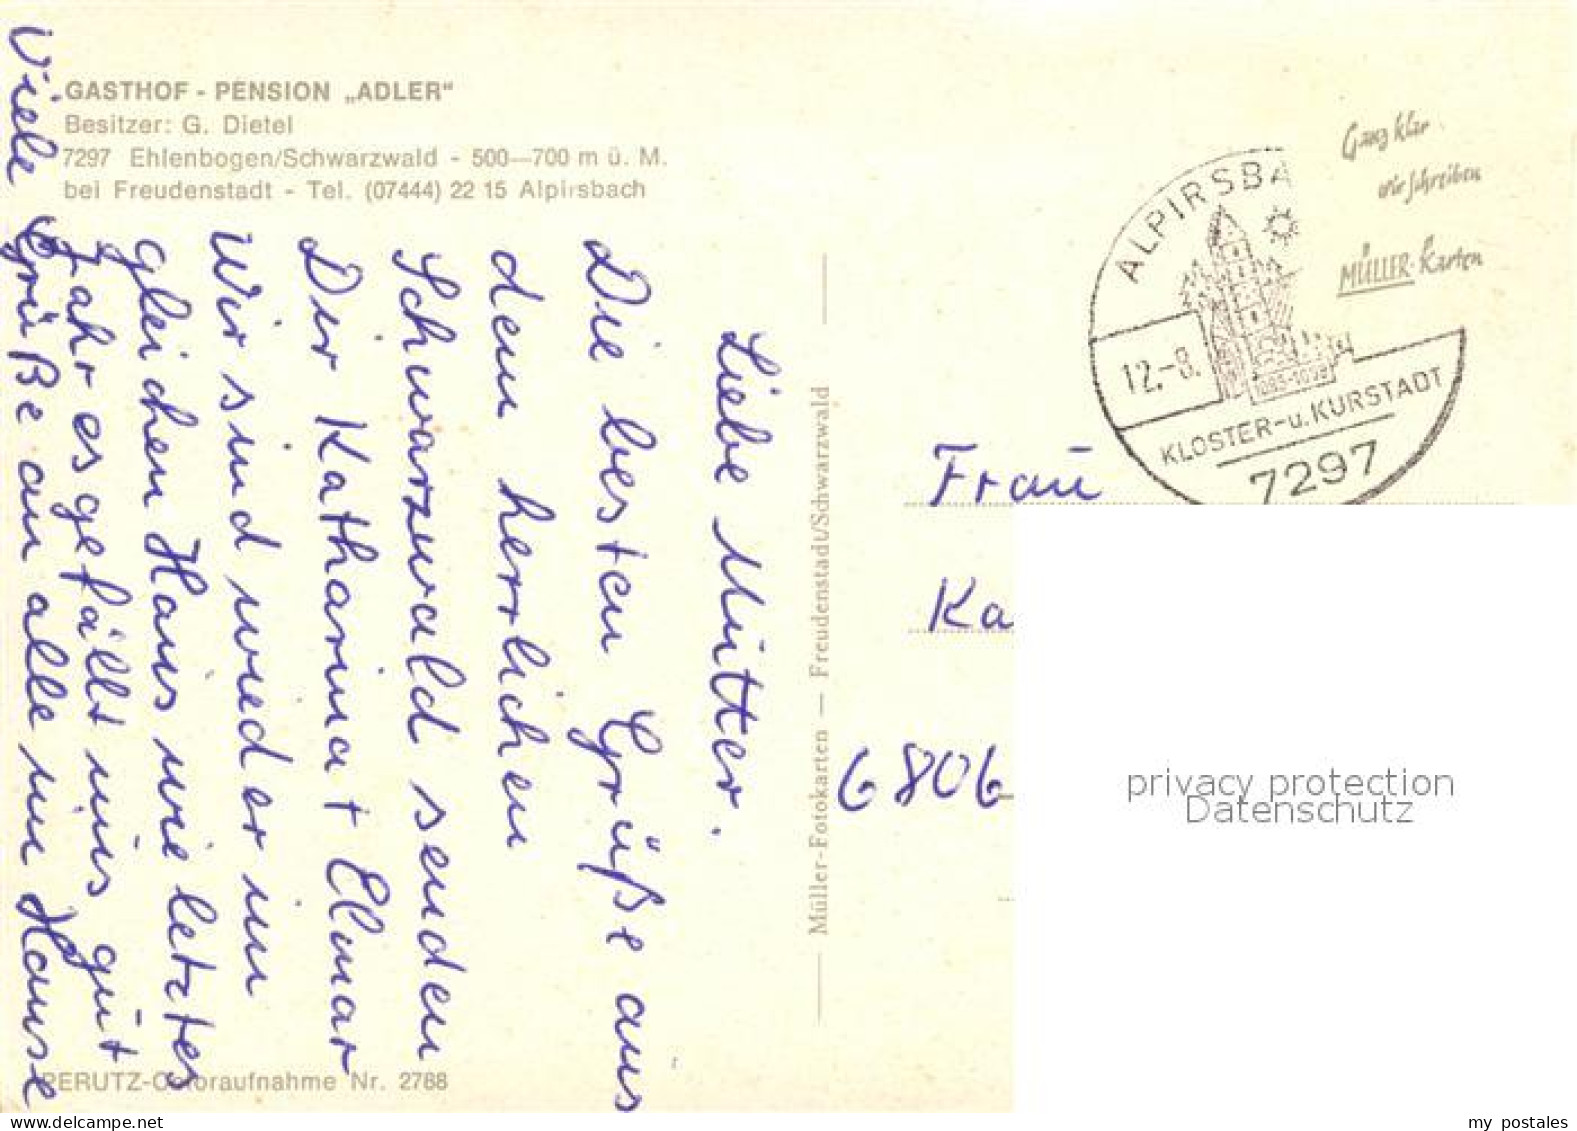 GASTHOF - PENSION „ADLER“
Besitzer: G. Dietel
7297 Ehlenbogen/Schwarzwald - 500—700 m ü. M.
bei Freudenstadt - Tel. (07444) 22 15 Alpirsbach
Liebe Mutter.
Die besten Grüße aus
dem herrlichen
Schwarzwald senden
Dir Katharina + Elmar
Wir sind wieder im
gleichen Haus wie letztes
Jahr es gefällt uns gut
Viele Grüße an alle im Hause
PERUTZ-Coloraufnahme Nr. 2788
Müller-Fotokarten — Freudenstadt/Schwarzwald
Ganz klar
wir schreiben
MÜLLER-Karten
ALPIRSBA
12.-8.
1095-1098
KLOSTER-u. KURSTADT
7297
Frau
Ka
6806
privacy protection
Datenschutz
my postales